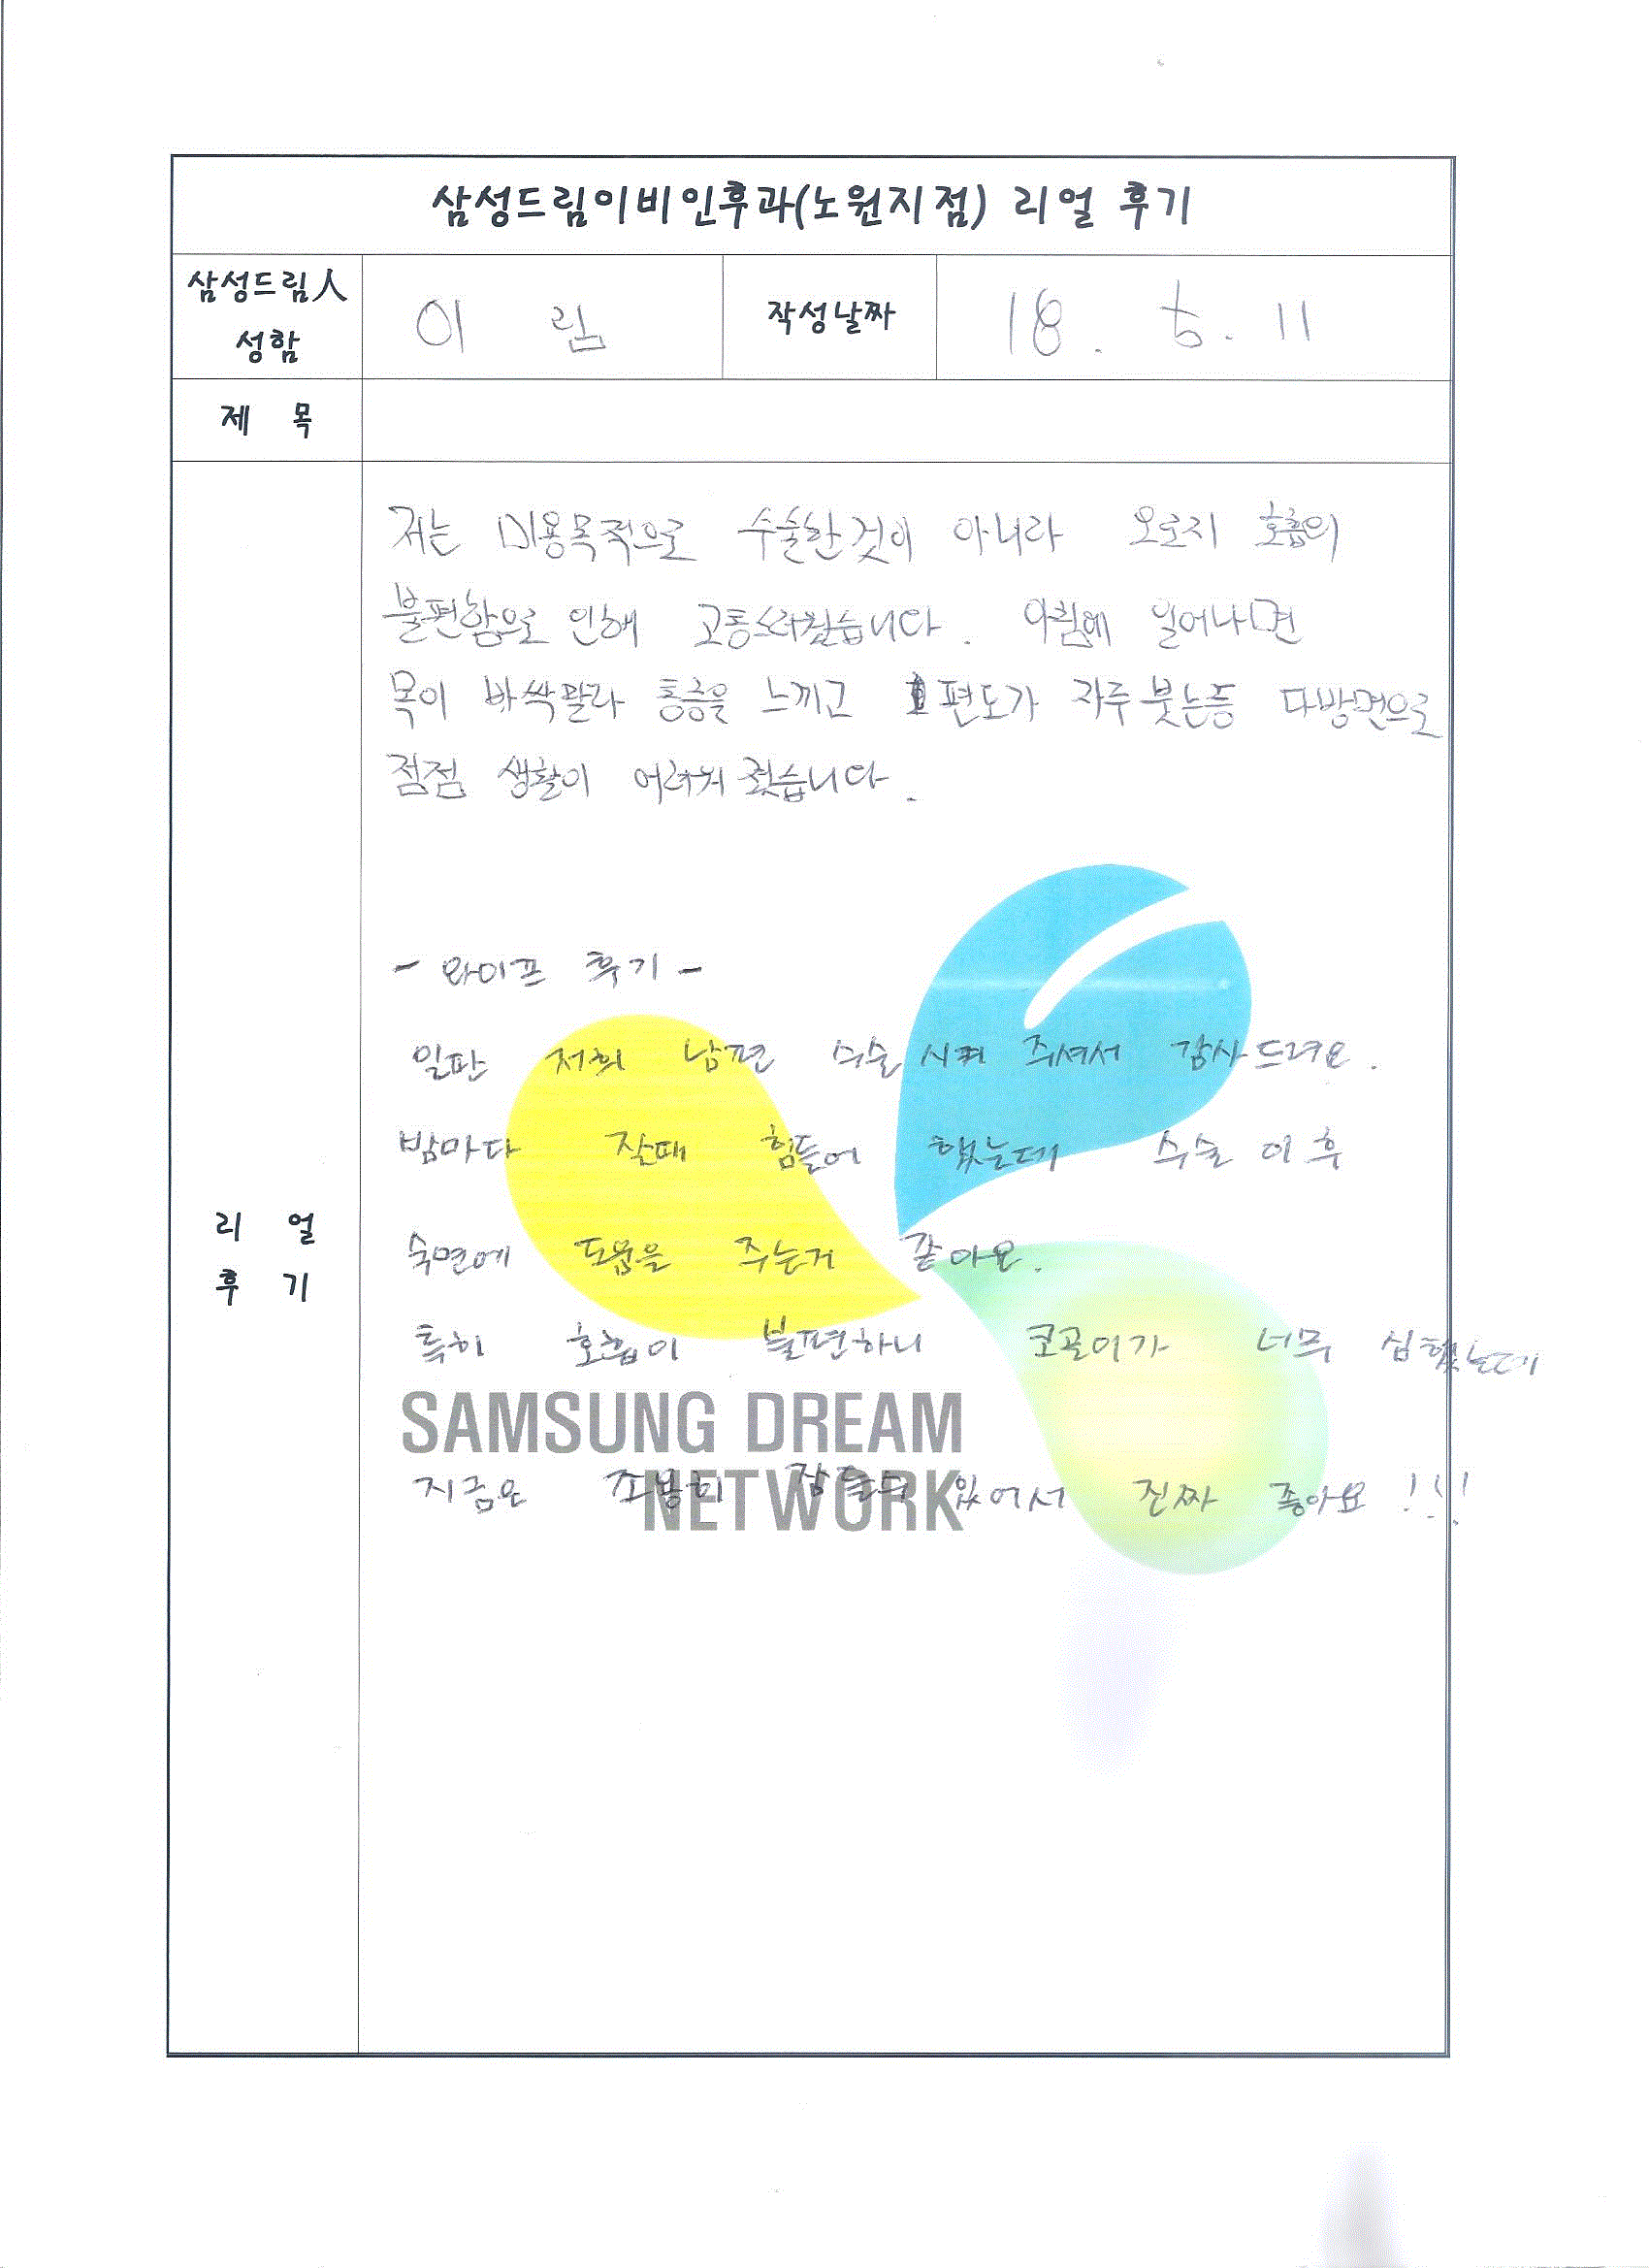 삼성드림이비인후과(노원지점) 리얼 후기
삼성드림人
성함
이 림
작성날짜
18. 5. 11
제 목
저는 미용목적으로 수술한것이 아니라 오로지 호흡의
불편함으로 인해 고통스러웠습니다. 아침에 일어나면
목이 바싹말라 통증을 느끼고 편도가 자주붓는등 다방면으로
점점 생활이 어려워졌습니다.
- 와이프 후기 -
일판 저희 남편 수술시켜 주셔서 감사드려요.
밤마다 잘때 힘들어 했는데 수술 이후
숙면에 도움을 주는거 같아요.
리 얼
후 기
특히 호흡이 불편하니 코골이가 너무 심했는데
SAMSUNG DREAM
NETWORK
지금은 조용히 잠들수 있어서 진짜 좋아요!!!